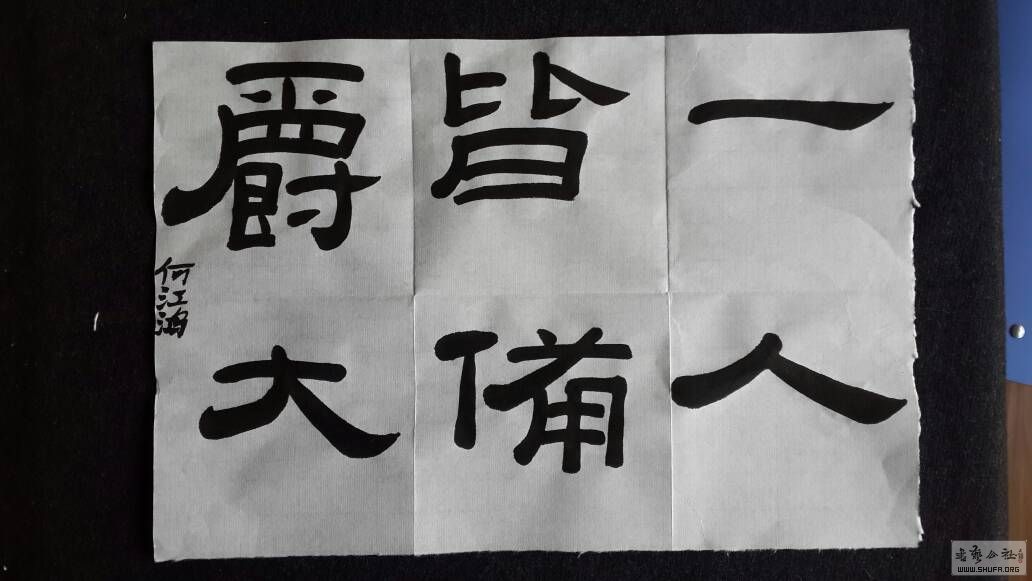 一人
皆備
爵大
何江鴻
书艺公社
WWW.SHUFA.ORG